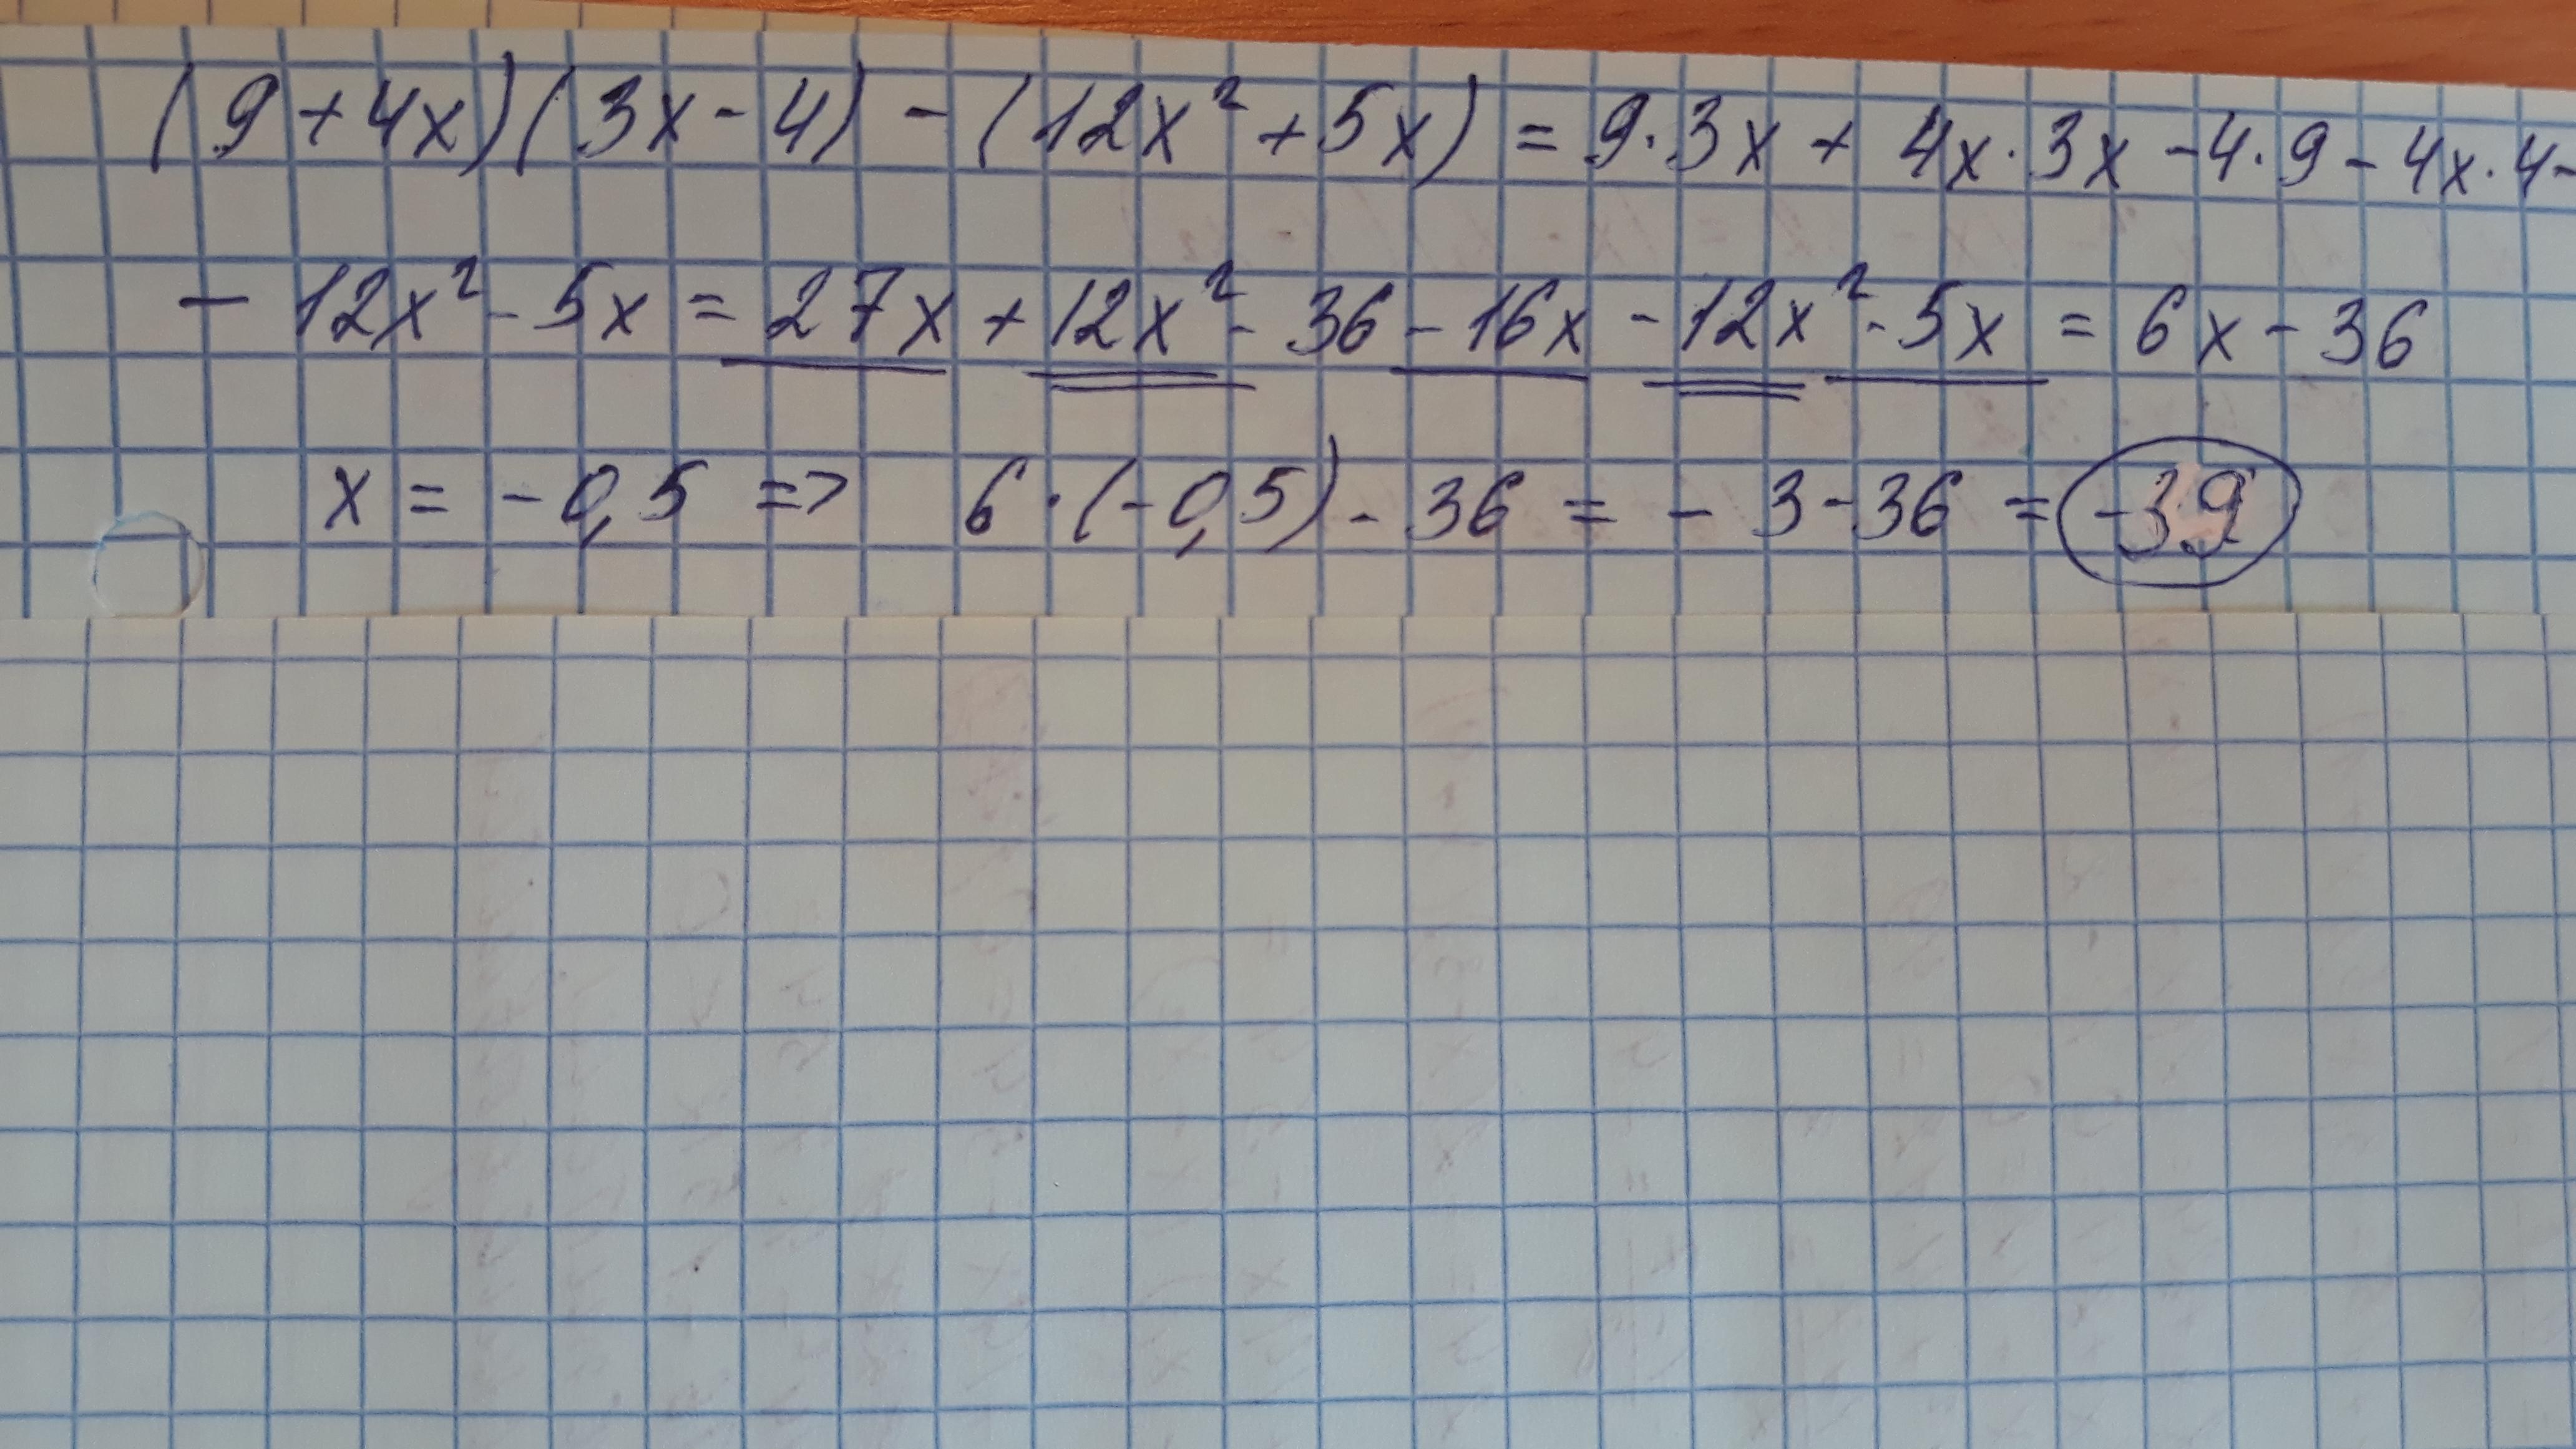 (9+4x)(3x-4) - (12x²+5x) = 9·3x + 4x·3x - 4·9 - 4x·4-
- 12x² - 5x = 27x + 12x² - 36 - 16x - 12x² - 5x = 6x - 36
x = -0,5 => 6·(-0,5) - 36 = -3-36 = -39